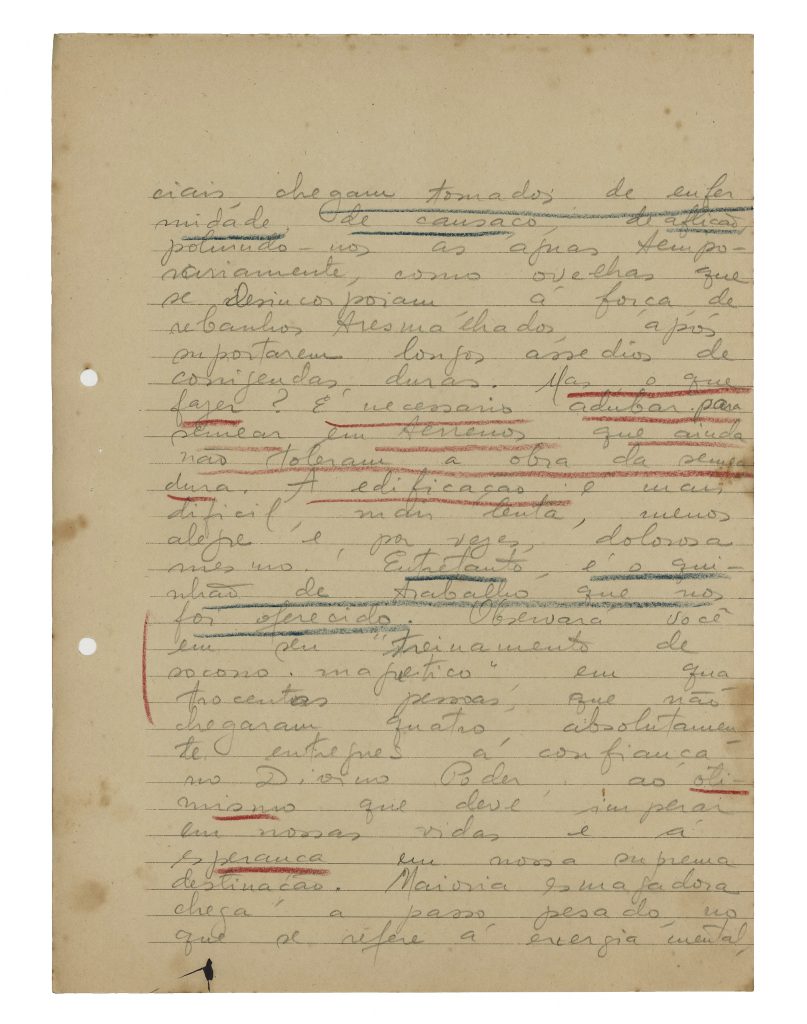 ciais, chegam tomados de enfer
midade, de cansaço, de aflição,
poluindo-nos as águas tempo-
rariamente, como ovelhas que
se desincorporam á força de
rebanhos tresmalhados, após
suportarem longos assedios de
corrigendas duras. Mas, o que
fazer? É necessario adubar para
semear em terrenos que ainda
não toleram a obra da semea
dura. A edificação é mais
dificil, mais lenta, menos
alegre e, por vezes, dolorosa
mesmo. Entretanto, é o qui-
nhão de trabalho que nos
foi oferecido. Observará você
em seu "treinamento de
socorro magnetico" em qua
trocentas pessoas, que não
chegaram quatro absolutamen
te entregues á confiança
no Divino Poder, ao oti-
mismo que deve imperar
em nossas vidas e á
esperança em nossa suprema
destinação. Maioria esmagadora
chega a passo pesado, no
que se refere á energia mental,